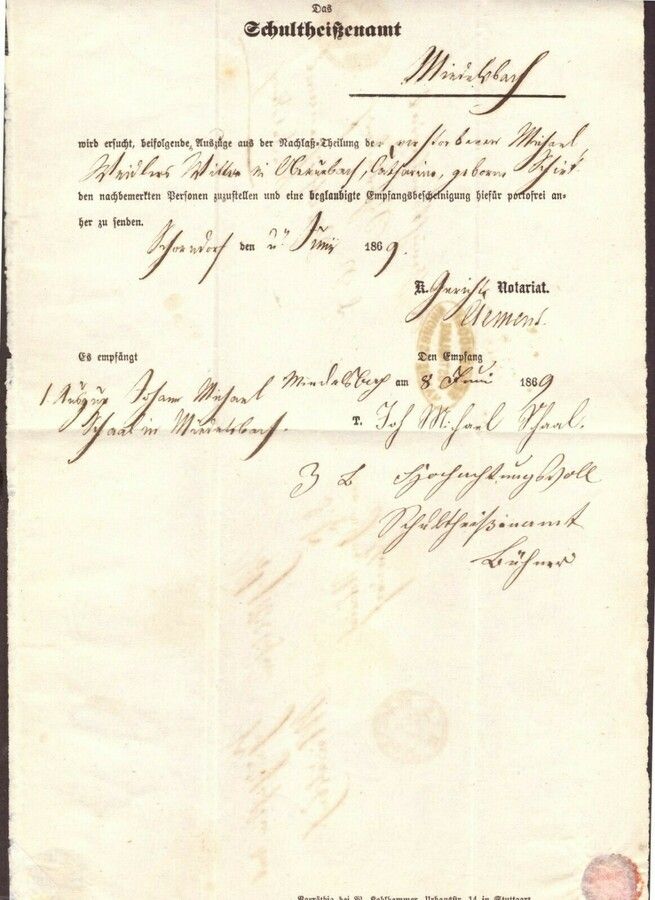 Das
Schultheißenamt
Miedelsbach
wird ersucht, beifolgende Auszüge aus der Nachlaß-Theilung der verstorbenen Michael
Wittwe in Oberurbach, Catharine, geborne
den nachbemerkten Personen zuzustellen und eine beglaubigte Empfangsbescheinigung hiefür portofrei an-
her zu senden.
Schorndorf den Juni 1869.
K. Gerichts Notariat.
Es empfängt
Den Empfang
1 Auszug Johann Michael
Schaal in Miedelsbach.
Miedelsbach am 8 Juni 1869
T. Joh Michael Schaal.
Hochachtungsvoll
Schultheißenamt
Bühner
Vorräthig bei W. Kohlhammer, Urbanstr. 14 in Stuttgart